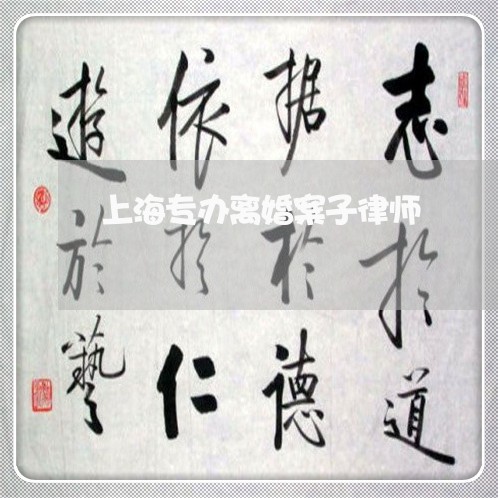 志於道
据於德
依於仁
遊於藝
上海专办离婚案子律师